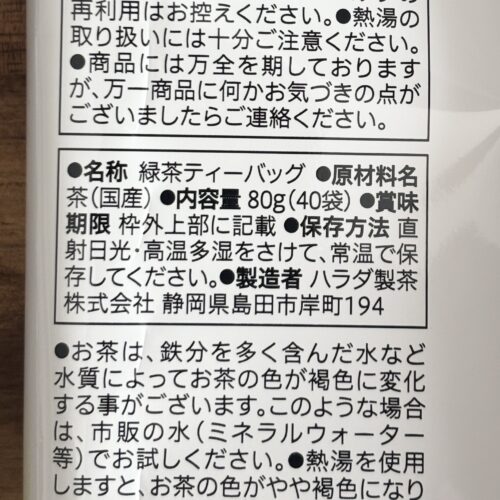 再利用はお控えください。●熱湯の
取り扱いには十分ご注意ください。
●商品には万全を期しております
が、万一商品に何かお気づきの点が
ございましたらご連絡ください。
●名称 緑茶ティーバッグ ●原材料名
茶(国産) ●内容量 80g(40袋) ●賞味
期限 枠外上部に記載 ●保存方法 直
射日光・高温多湿をさけて、常温で保
存してください。●製造者 ハラダ製茶
株式会社 静岡県島田市岸町194
●お茶は、鉄分を多く含んだ水など
水質によってお茶の色が褐色に変化
する事がございます。このような場合
は、市販の水(ミネラルウォーター
等)でお試しください。●熱湯を使用
しますと、お茶の色がやや褐色になり